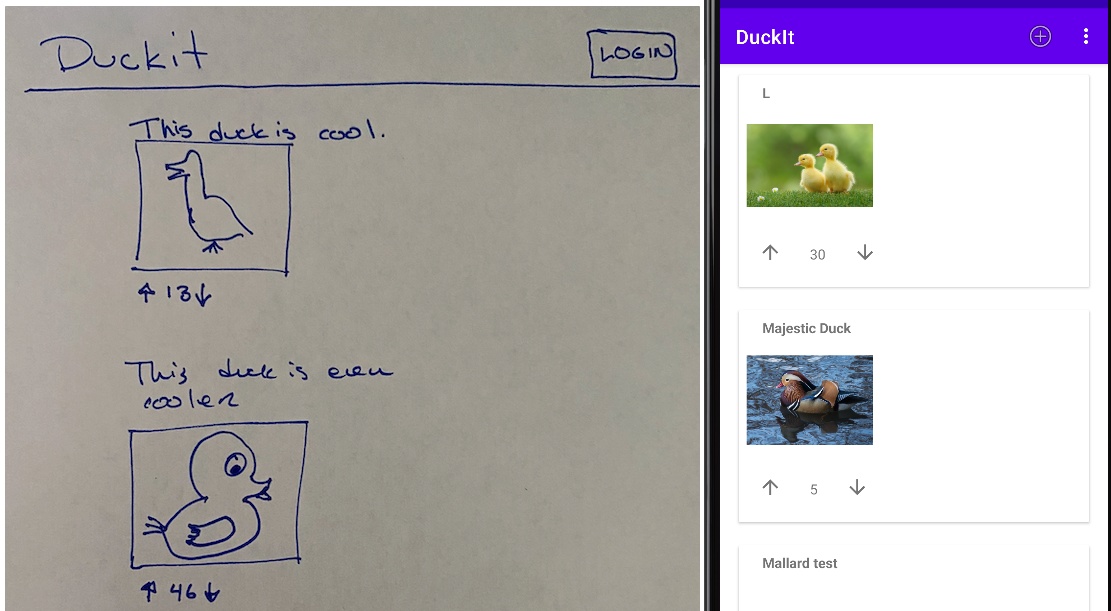 Duckit
LOGIN
This duck is cool.
13
This duck is even
cooler
46
DuckIt
L
30
Majestic Duck
5
Mallard test